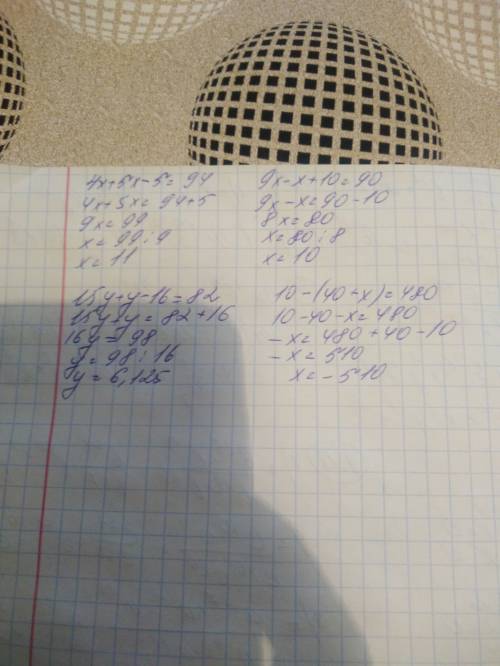 4x+5x-5=94
4x+5x=94+5
9x=99
x=99:9
x=11
9x-x+10=90
9x-x=90-10
8x=80
x=80:8
x=10
15y+y-16=82
15y+y=82+16
16y=98
y=98:16
y=6,125
10-(40+x)=480
10-40-x=480
-x=480+40-10
-x=510
x=-510